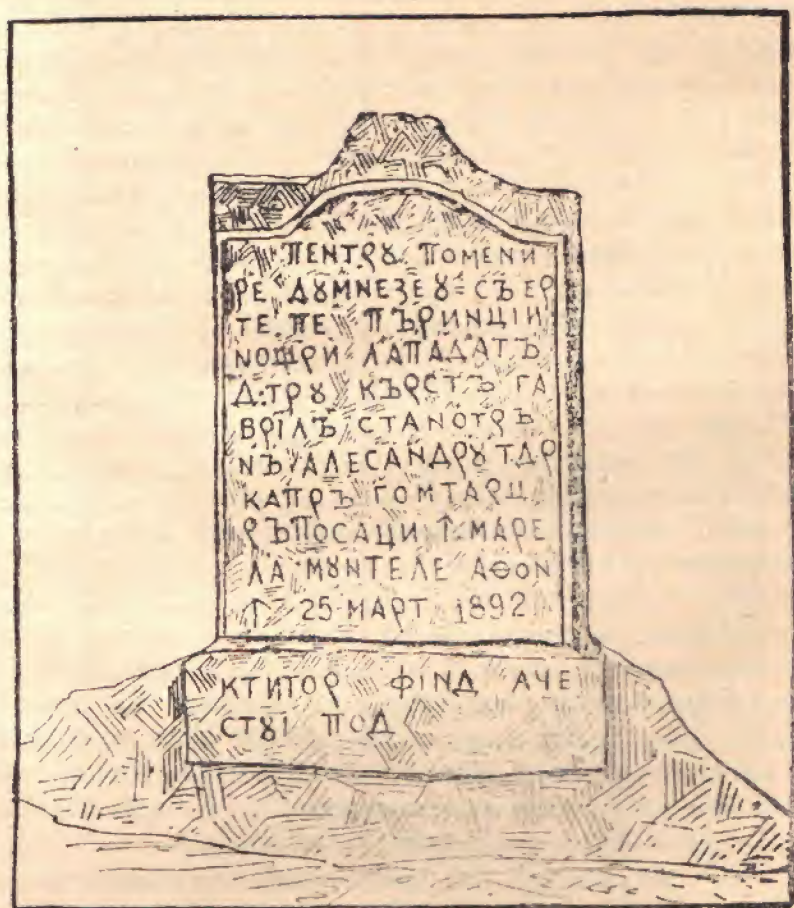 ПЕНТРȢ ПОМЕНИ
РЕ ДȢМНЕЗЕȢ = СЪ ЕР
ТЕ ПЕ ПЪРИНЦІИ
НОЩРИ ЛАПАДАТЪ
Д:ТРȢ КЪРСТЪ ГА
ВРІЛЪ СТАНОТРЪ
НЪ АЛЕСАНДРȢ Т.ДР
КАПРЪ ГОМТАРЦ.
РЪПОСАЦИ ↑ МАРЕ
ЛА МȢНТЕЛЕ АѲОН
↑ 25 МАРТ 1892
КТИТОР ФІНД АЧЕ
СТȢІ ПОД